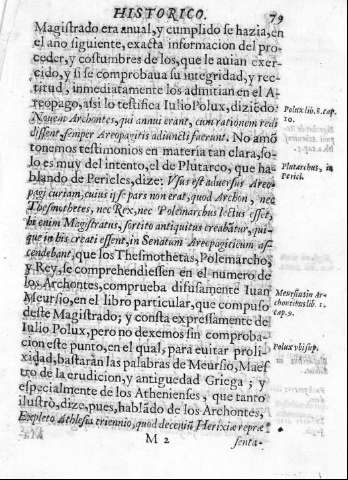 HISTORICO. 79
Magistrado era anual, y cumplido se hazia, en
el ano siguiente, exacta informacion del pro-
ceder, y costumbres de los, que le auian exer-
cido, y si se comprobaua su integridad, y rec-
titud, inmediatamente los admitian en el A-
reopago, asi lo testifica Iulio Polux, diziẽdo:
Nouem Archontes, qui annui erant, cum rationem redi
dissent, semper Areopagitis adiuncti fuerunt. No amõ
tonemos testimonios en materia tan clara, so-
lo es muy del intento, el de Plutarco, que ha-
blando de Pericles, dize: Vsus est aduersus Areo-
pagi curiam, cuius ipse pars non erat, quod Archon, nec
Thesmothetes, nec Rex, nec Polemarchus lectus esset,
hi enim Magistratus, sortito antiquitus creabãtur, qui-
que in his creati essent, in Senatum Areopagiticum as-
cendebant, que los Thesmothetas, Polemarcho,
y Rey, se comprehendiessen en el numero de
los Archontes, comprueba difusamente Iuan
Meursio, en el libro particular, que compuso
deste Magistrado; y consta expressamente de
Iulio Polux, pero no dexemos sin comproba-
cion este punto, en el qual, para euitar proli-
xidad, bastaràn las palabras de Meursio, Maes
tro de la erudicion, y antiguedad Griega; y
especialmente de los Athenienses, que tanto
ilustrò, dize, pues, hablãdo de los Archontes,
Expleto Athlesiæ triennio, quod deceniũ Herixiæ repræ
M 2 senta-
Polux lib. 8. cap.
10.
Plutarchus, in
Pericl.
Meursius in Ar-
chontibus lib. 1.
cap. 9.
Polux vbi sup.